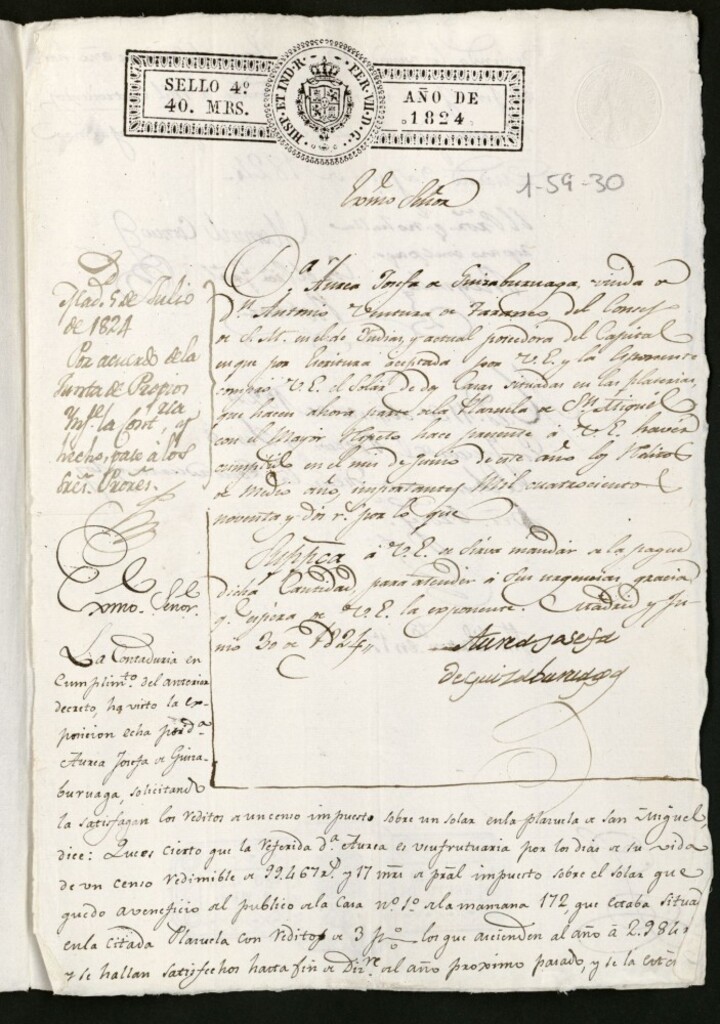 SELLO 4º
40. MRS.
HISP. ET IND. R. FER. VII. D. G.
AÑO DE
1824
1-59-30
Exmo Señor
D.ª Aurea Josefa de Guizaburuaga, viuda de
D.n Antonio Ventura de Taranco, del Consejo
de S. M. en el de Indias, y actual poseedora del Capital
en que por Escritura otorgada por V.E. y la Exponente
compró V.E. el Solar de dos Casas situadas en las platerias,
que hacen ahora parte de la Plazuela de S.n Miguel
con el mayor respeto hace presente á V.E. haver
cumplido en el mes de Junio de este año los Reditos
de medio año, importantes Mil quatrocientos
noventa y dos r.s por lo que
Suppca á V.E. se sirva mandar se la pague
dicha Cantidad, para atender á sus urgencias, gracia
q. espera de V.E. la exponente. Madrid y Ju-
nio 30 de 1824,,
Aurea Josefa
de Guizaburuaga
Mad. 5 de Julio
de 1824
Por acuerdo de la
Junta de Propios
Inf.e la Cont.ria, y
hecho, pase á los
Sres. Prores.
Exmo. Señor.
La Contaduria en
Cumplim.to del anterior
decreto, ha visto la ex-
posicion echa por d.a
Aurea Josefa de Guiza-
buruaga, solicitando
la satisfagan los reditos de un censo impuesto sobre un solar en la plazuela de San Miguel,
dice: Que es cierto que la referida d.a Aurea es usufrutuaria por los dias de su vida
de un censo redimible de 99.467 r.s y 17 mrs de pral impuesto sobre el solar que
quedo a veneficio del publico de la Casa nº 1º de la manzana 172, que estaba situada
en la citada Plazuela con reditos de 3 p% los que ascienden al año á 2.984 r
y se hallan satisfechos hasta fin de Dizre del año proximo pasado, y se la está